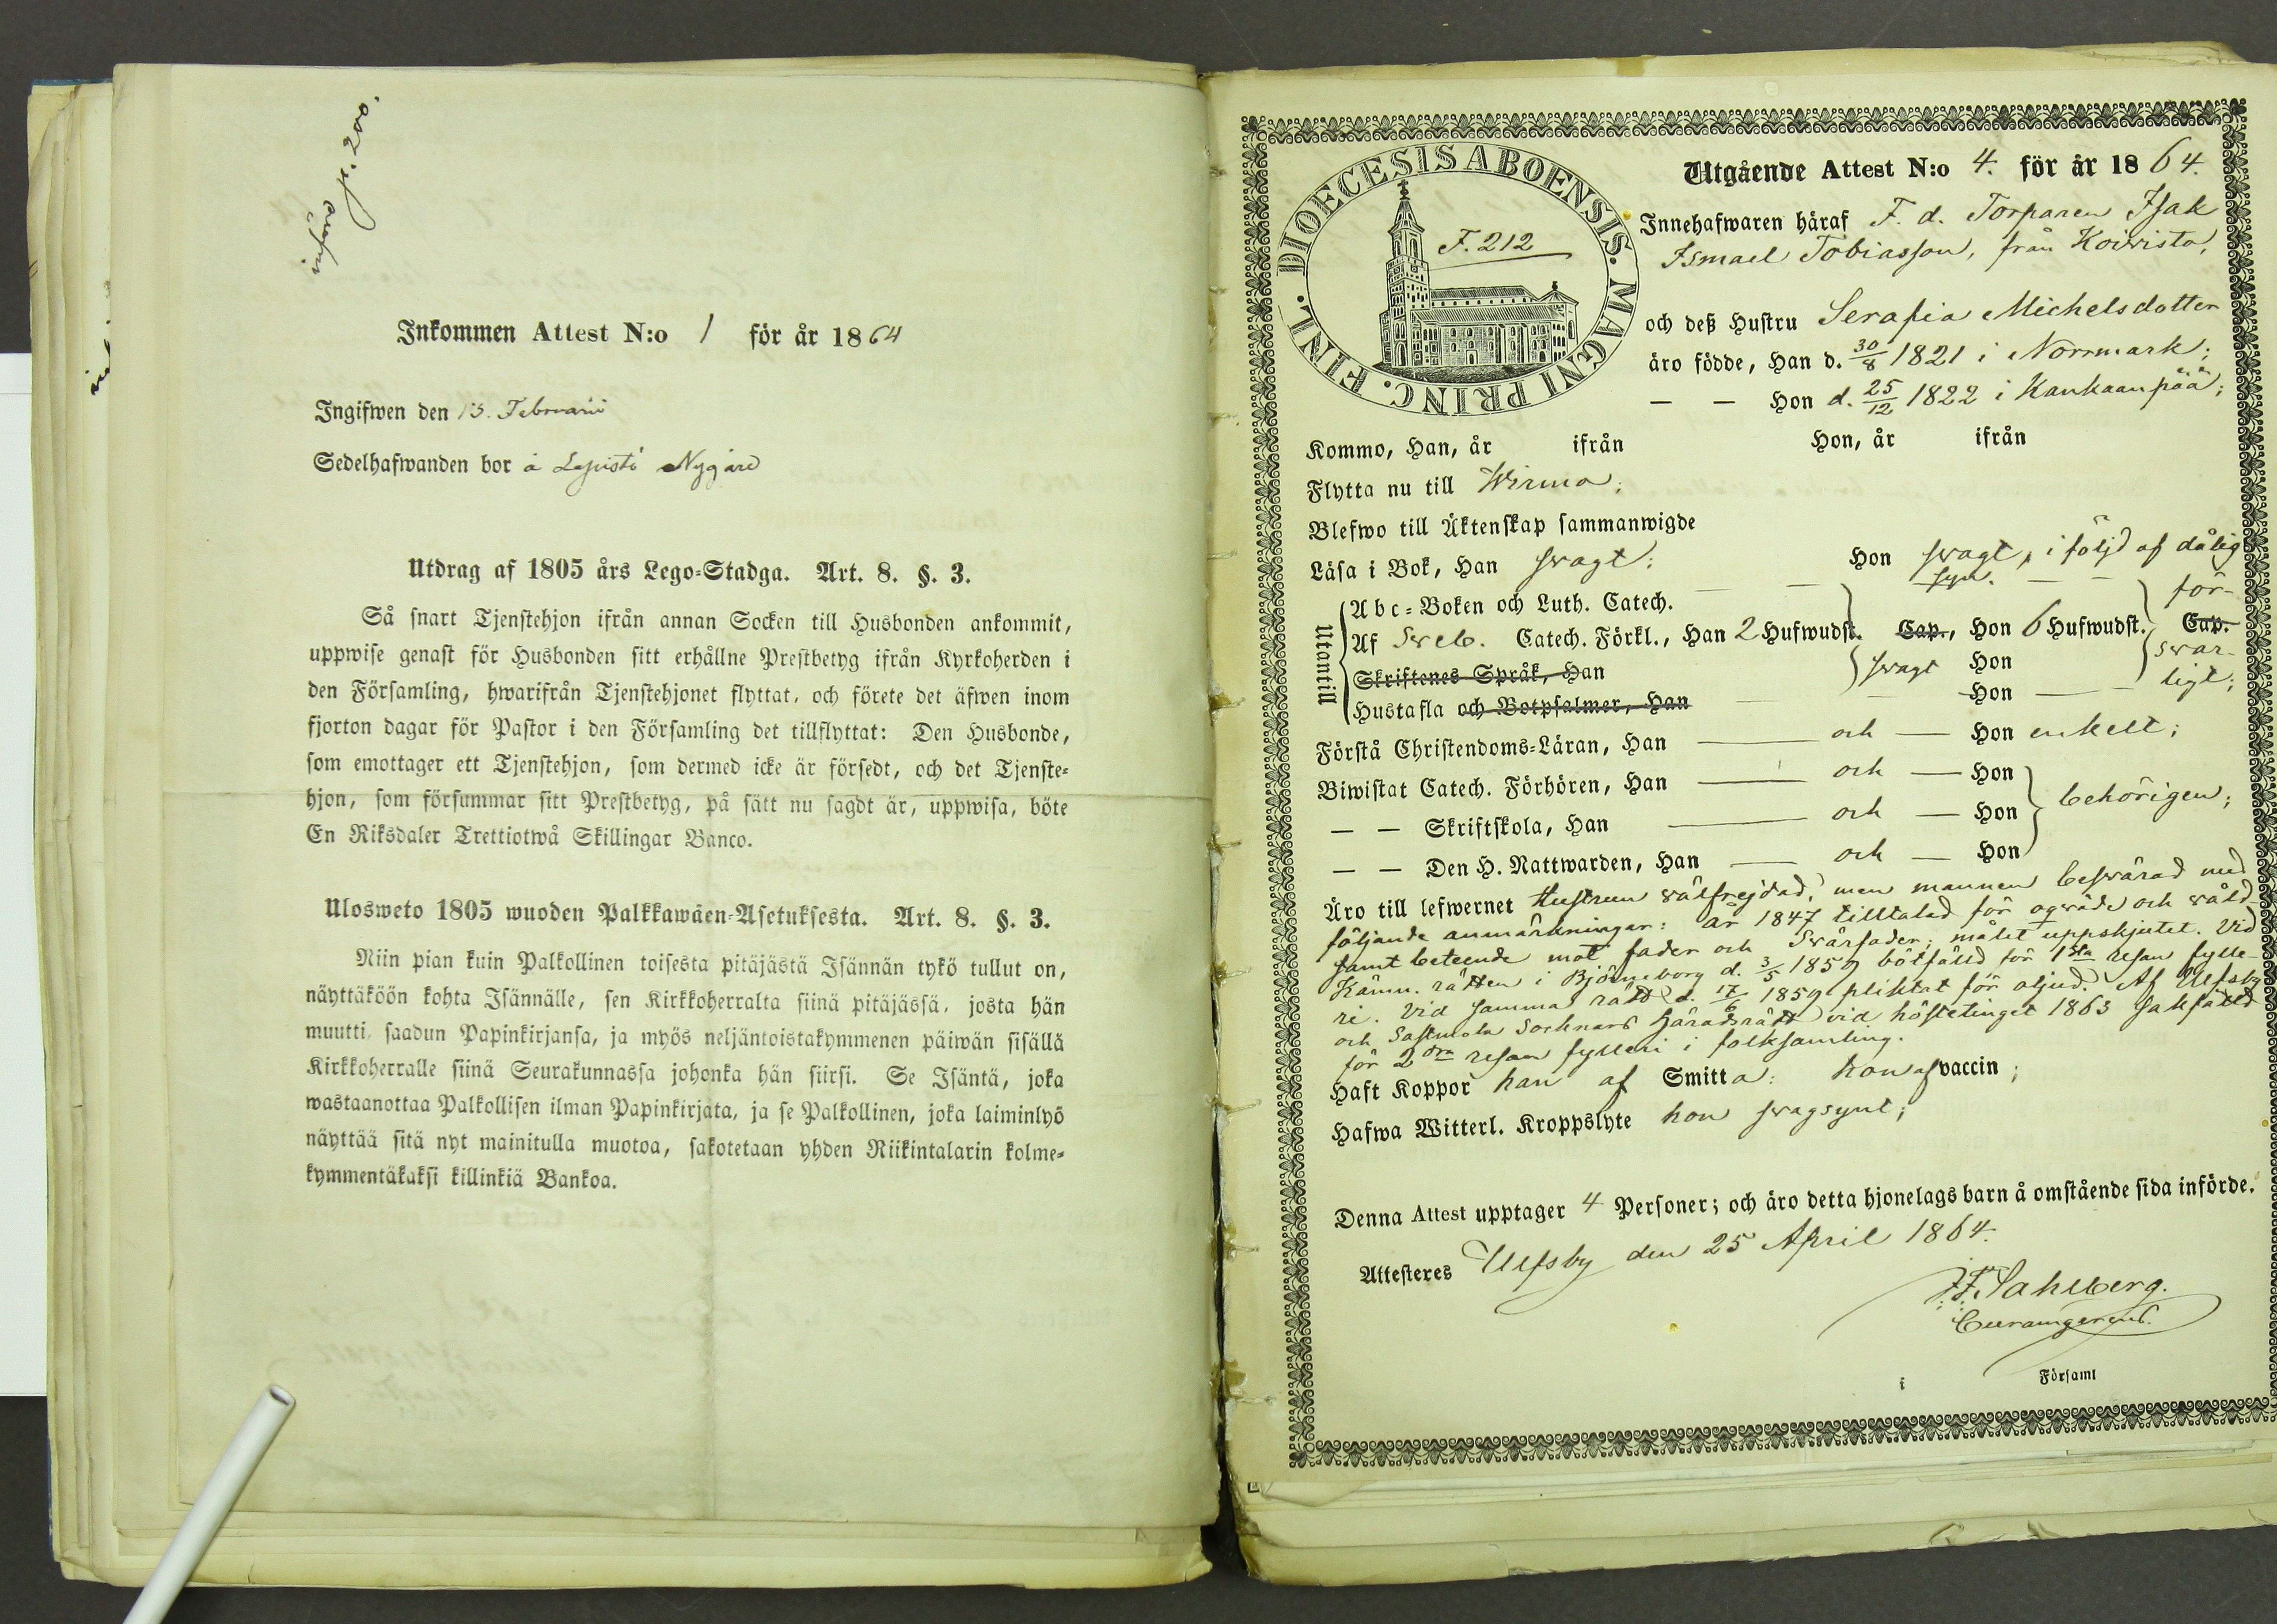 införd p. 200.
Inkommen Attest N:o 1 för år 1864
Ingifwen den 13. Februarii
Sedelhafwanden bor å Lepistö Nygård
Utdrag af 1805 års Lego-Stadga. Art. 8. §. 3.
Så snart Tjenstehjon ifrån annan Socken till Husbonden ankommit,
uppwise genast för Husbonden sitt erhållne Prestbetyg ifrån Kyrkoherden i
den Församling, hwarifrån Tjenstehjonet flyttat, och förete det äfwen inom
fjorton dagar för Pastor i den Församling det tillflyttat: Den Husbonde,
som emottager ett Tjenstehjon, som dermed icke är försedt, och det Tjenste-
hjon, som försummar sitt Prestbetyg, på sätt nu sagdt är, uppwisa, böte
En Riksdaler Trettiotwå Skillingar Banco.
Ulosweto 1805 wuoden Palkkawäen-Asetuksesta. Art. 8. §. 3.
Niin pian kuin Palkollinen toisesta pitäjästä Isännän tykö tullut on,
näyttäköön kohta Isännälle, sen Kirkkoherralta siinä pitäjässä, josta hän
muutti, saadun Papinkirjansa, ja myös neljäntoistakymmenen päiwän sisällä
Kirkkoherralle siinä Seurakunnassa johonka hän siirsi. Se Isäntä, joka
wastaanottaa Palkollisen ilman Papinkirjata, ja se Palkollinen, joka laiminlyö
näyttää sitä nyt mainitulla muotoa, sakotetaan yhden Riikintalarin kolme-
kymmentäkaksi killinkiä Bankoa.
DIOECESIS ABOENSIS. MAGNI PRINC. FINL.
F. 212
Utgående Attest N:o 4. för år 1864.
Innehafwaren häraf F. d. Torparen Isak
Ismael Tobiasson, från Koivisto,
och deß Hustru Serafia Michelsdotter
äro födde, Han d. 30/8 1821 i Norrmark;
— — Hon d. 25/12 1822 i Kankaanpää;
Kommo, Han, år ifrån Hon, år ifrån
Flytta nu till Wirmo;
Blefwo till Äktenskap sammanwigde
Läsa i Bok, Han svagt; Hon svagt, i följd af dålig
syn.
Utantill
Abc-Boken och Luth. Catech. — — — för-
Af Sveb. Catech. Förkl., Han 2 Hufwudst. Cap., Hon 6 Hufwudst. Cap.
Skriftenes Språk, Han svagt Hon svar-
Hustafla och Botpsalmer, Han — Hon — ligt;
Förstå Christendoms-Läran, Han — och — Hon enkelt;
Biwistat Catech. Förhören, Han — och — Hon
— — Skriftskola, Han — och — Hon behörigen;
— — Den H. Nattwarden, Han — och — Hon
Äro till lefwernet Hustrun välfrejdad, men mannen besvärad med
följande anmärkningar: år 1847 tilltalad för oqväde och våld-
samt beteende mot fader och Svärfader; målet uppskjutet. Vid
Kämn. rätten i Björneborg d. 3/5 1859 bötfälld för 1sta resan fylle-
ri. Vid samma rätt d. 17/6 1859 pliktat för oljud. Af Ulfsby
och Sastmola Socknars Häradsrätt vid hösttinget 1863 sakfälld
för 2dra resan fylleri i folksamling.
Haft Koppor han af Smitta: hon af vaccin;
Hafwa Witterl. Kroppslyte hon svagsynt;
Denna Attest upptager 4 Personer; och äro detta hjonelags barn å omstående sida införde.
Attesteres Ulfsby den 25 April 1864.
F. Sahlberg.
i Församl